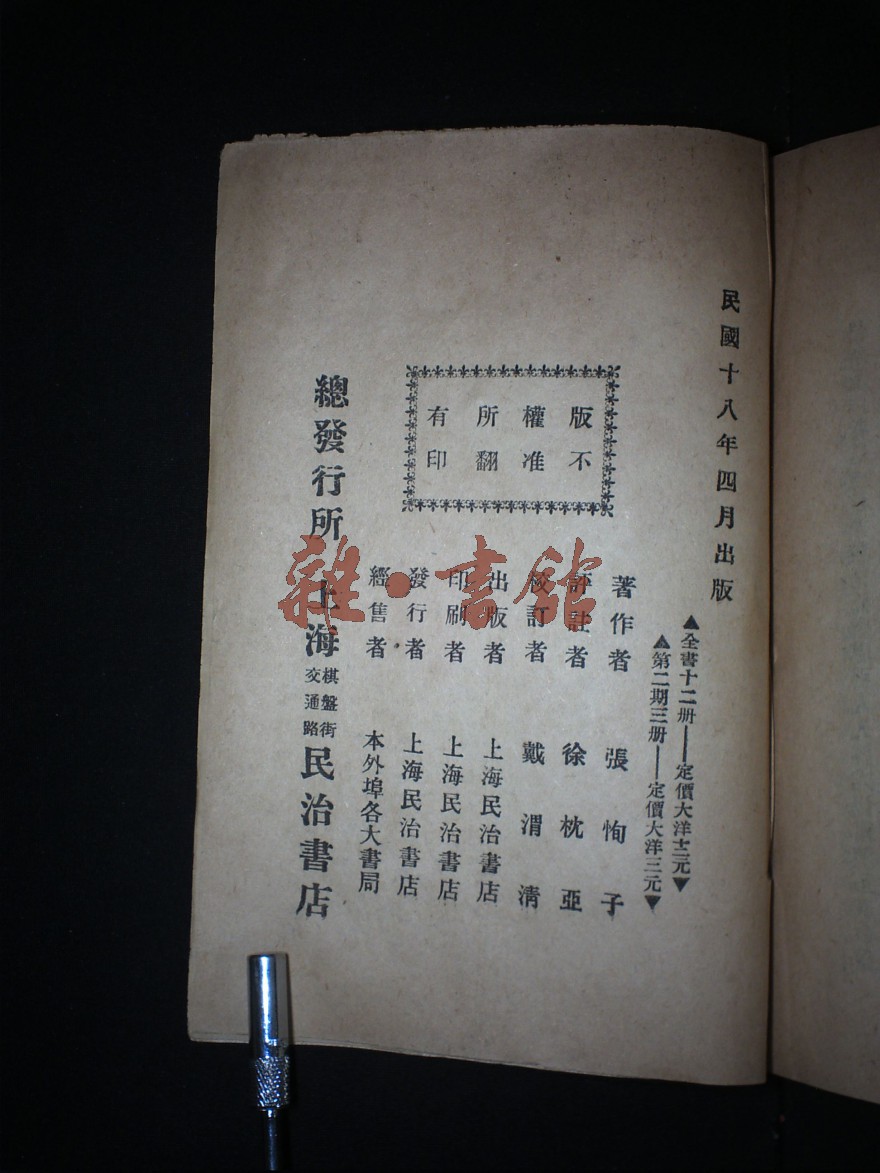 民國十八年四月出版
▲全書十二册——定價大洋十二元▼
▲第二期三册——定價大洋三元▼
版權所有
不准翻印
著作者 張恂子
評註者 徐枕亞
校訂者 戴渭清
出版者 上海民治書店
印刷者 上海民治書店
發行者 上海民治書店
經售者 本外埠各大書局
總發行所 上海棋盤街交通路民治書店
雜·書館